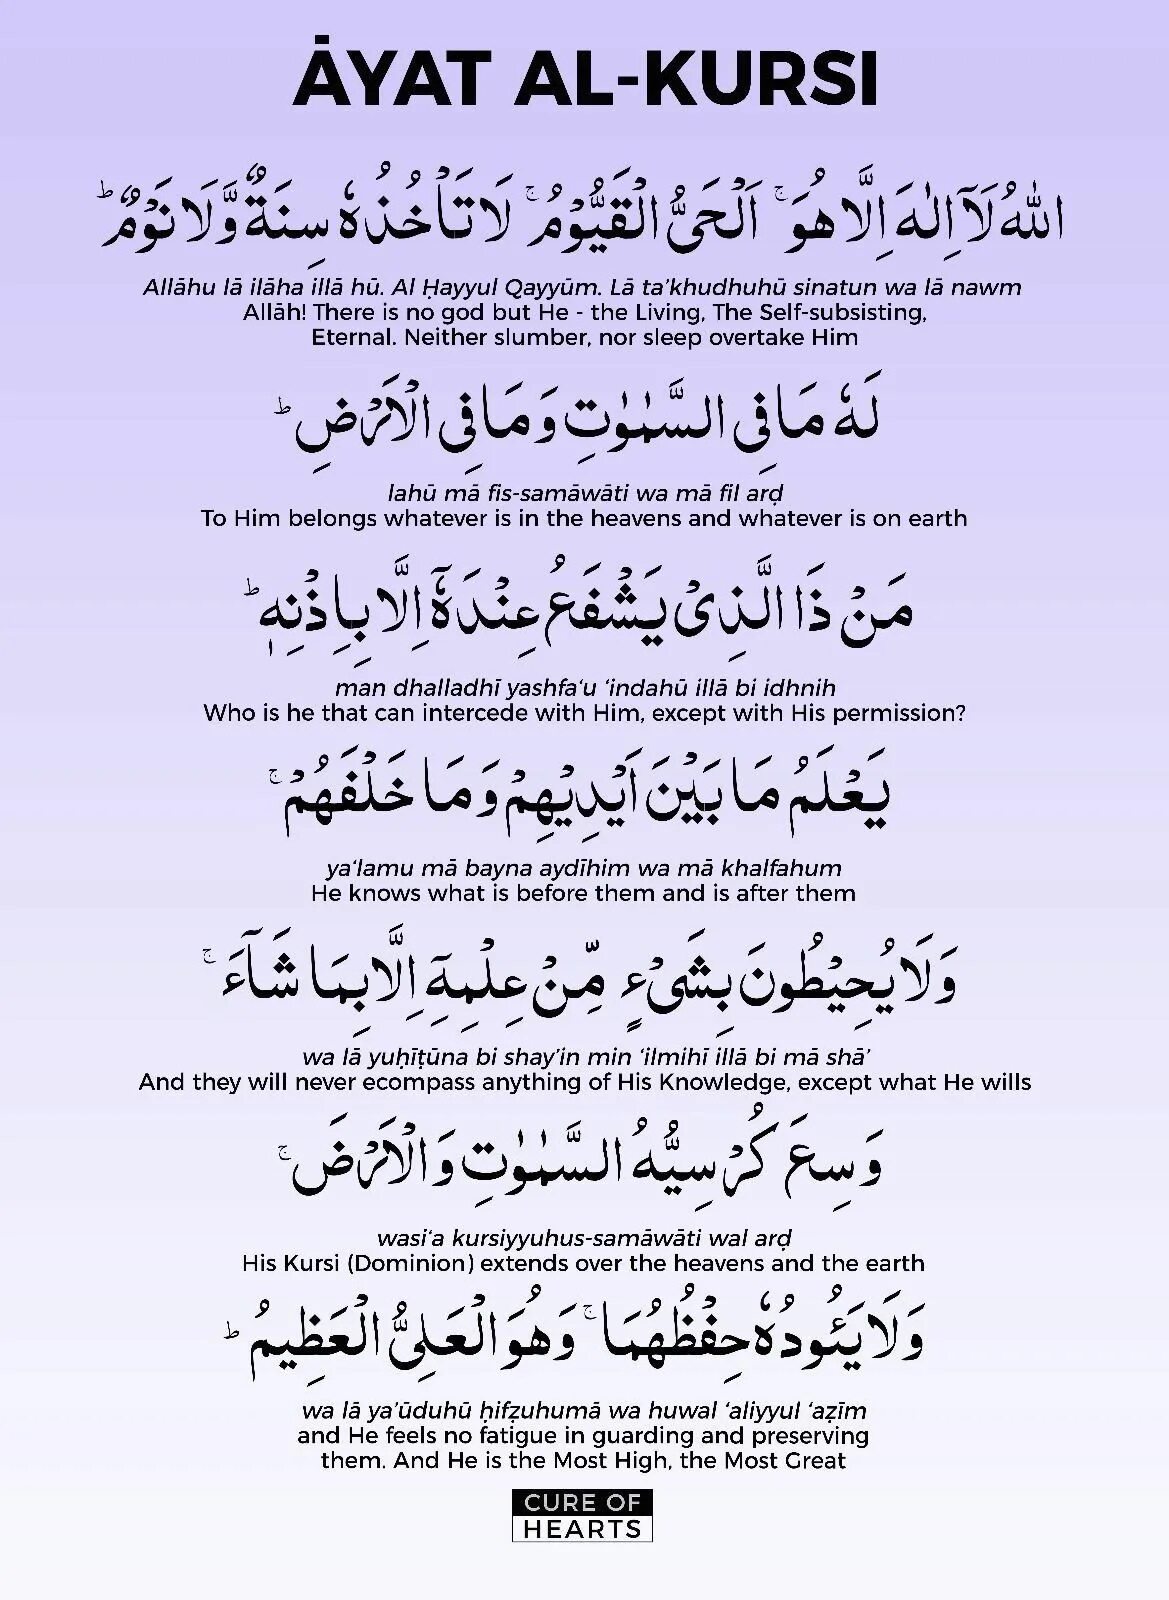 ĀYAT AL-KURSI
اللّٰهُ لَآ اِلٰهَ اِلَّا هُوَ ۚ اَلْحَىُّ الْقَيُّوْمُ ۚ لَا تَاْخُذُهٗ سِنَةٌ وَّلَا نَوْمٌ ؕ
Allāhu lā ilāha illā hū. Al Ḥayyul Qayyūm. Lā ta’khudhuhū sinatun wa lā nawm
Allāh! There is no god but He - the Living, The Self-subsisting,
Eternal. Neither slumber, nor sleep overtake Him
لَهٗ مَا فِى السَّمٰوٰتِ وَمَا فِى الْاَرْضِ ؕ
lahū mā fis-samāwāti wa mā fil arḍ
To Him belongs whatever is in the heavens and whatever is on earth
مَنْ ذَا الَّذِىْ يَشْفَعُ عِنْدَهٗٓ اِلَّا بِاِذْنِهٖ ؕ
man dhalladhī yashfa‘u ‘indahū illā bi idhnih
Who is he that can intercede with Him, except with His permission?
يَعْلَمُ مَا بَيْنَ اَيْدِيْهِمْ وَمَا خَلْفَهُمْ ۚ
ya‘lamu mā bayna aydīhim wa mā khalfahum
He knows what is before them and is after them
وَلَا يُحِيْطُونَ بِشَىْءٍ مِّنْ عِلْمِهٖٓ اِلَّا بِمَا شَآءَ ۚ
wa lā yuḥīṭūna bi shay’in min ‘ilmihī illā bi mā shā’
And they will never ecompass anything of His Knowledge, except what He wills
وَسِعَ كُرْسِيُّهُ السَّمٰوٰتِ وَالْاَرْضَ ۚ
wasi‘a kursiyyuhus-samāwāti wal arḍ
His Kursi (Dominion) extends over the heavens and the earth
وَلَا يَئُودُهٗ حِفْظُهُمَا ۚ وَهُوَ الْعَلِىُّ الْعَظِيمُ ؕ
wa lā ya’ūduhū ḥifẓuhumā wa huwal ‘aliyyul ‘aẓīm
and He feels no fatigue in guarding and preserving
them. And He is the Most High, the Most Great
CURE OF
HEARTS